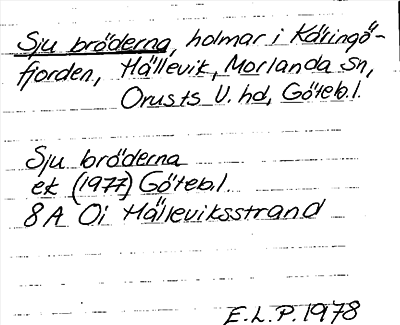 Sju bröderna, holmar i Käringö-
fjorden, Hällevik, Morlanda Sn,
Orusts V. hd, Göteb.l.
Sju bröderna
ek (1977) Göteb.l.
8A 0i Hälleviksstrand
E.L.P. 1978